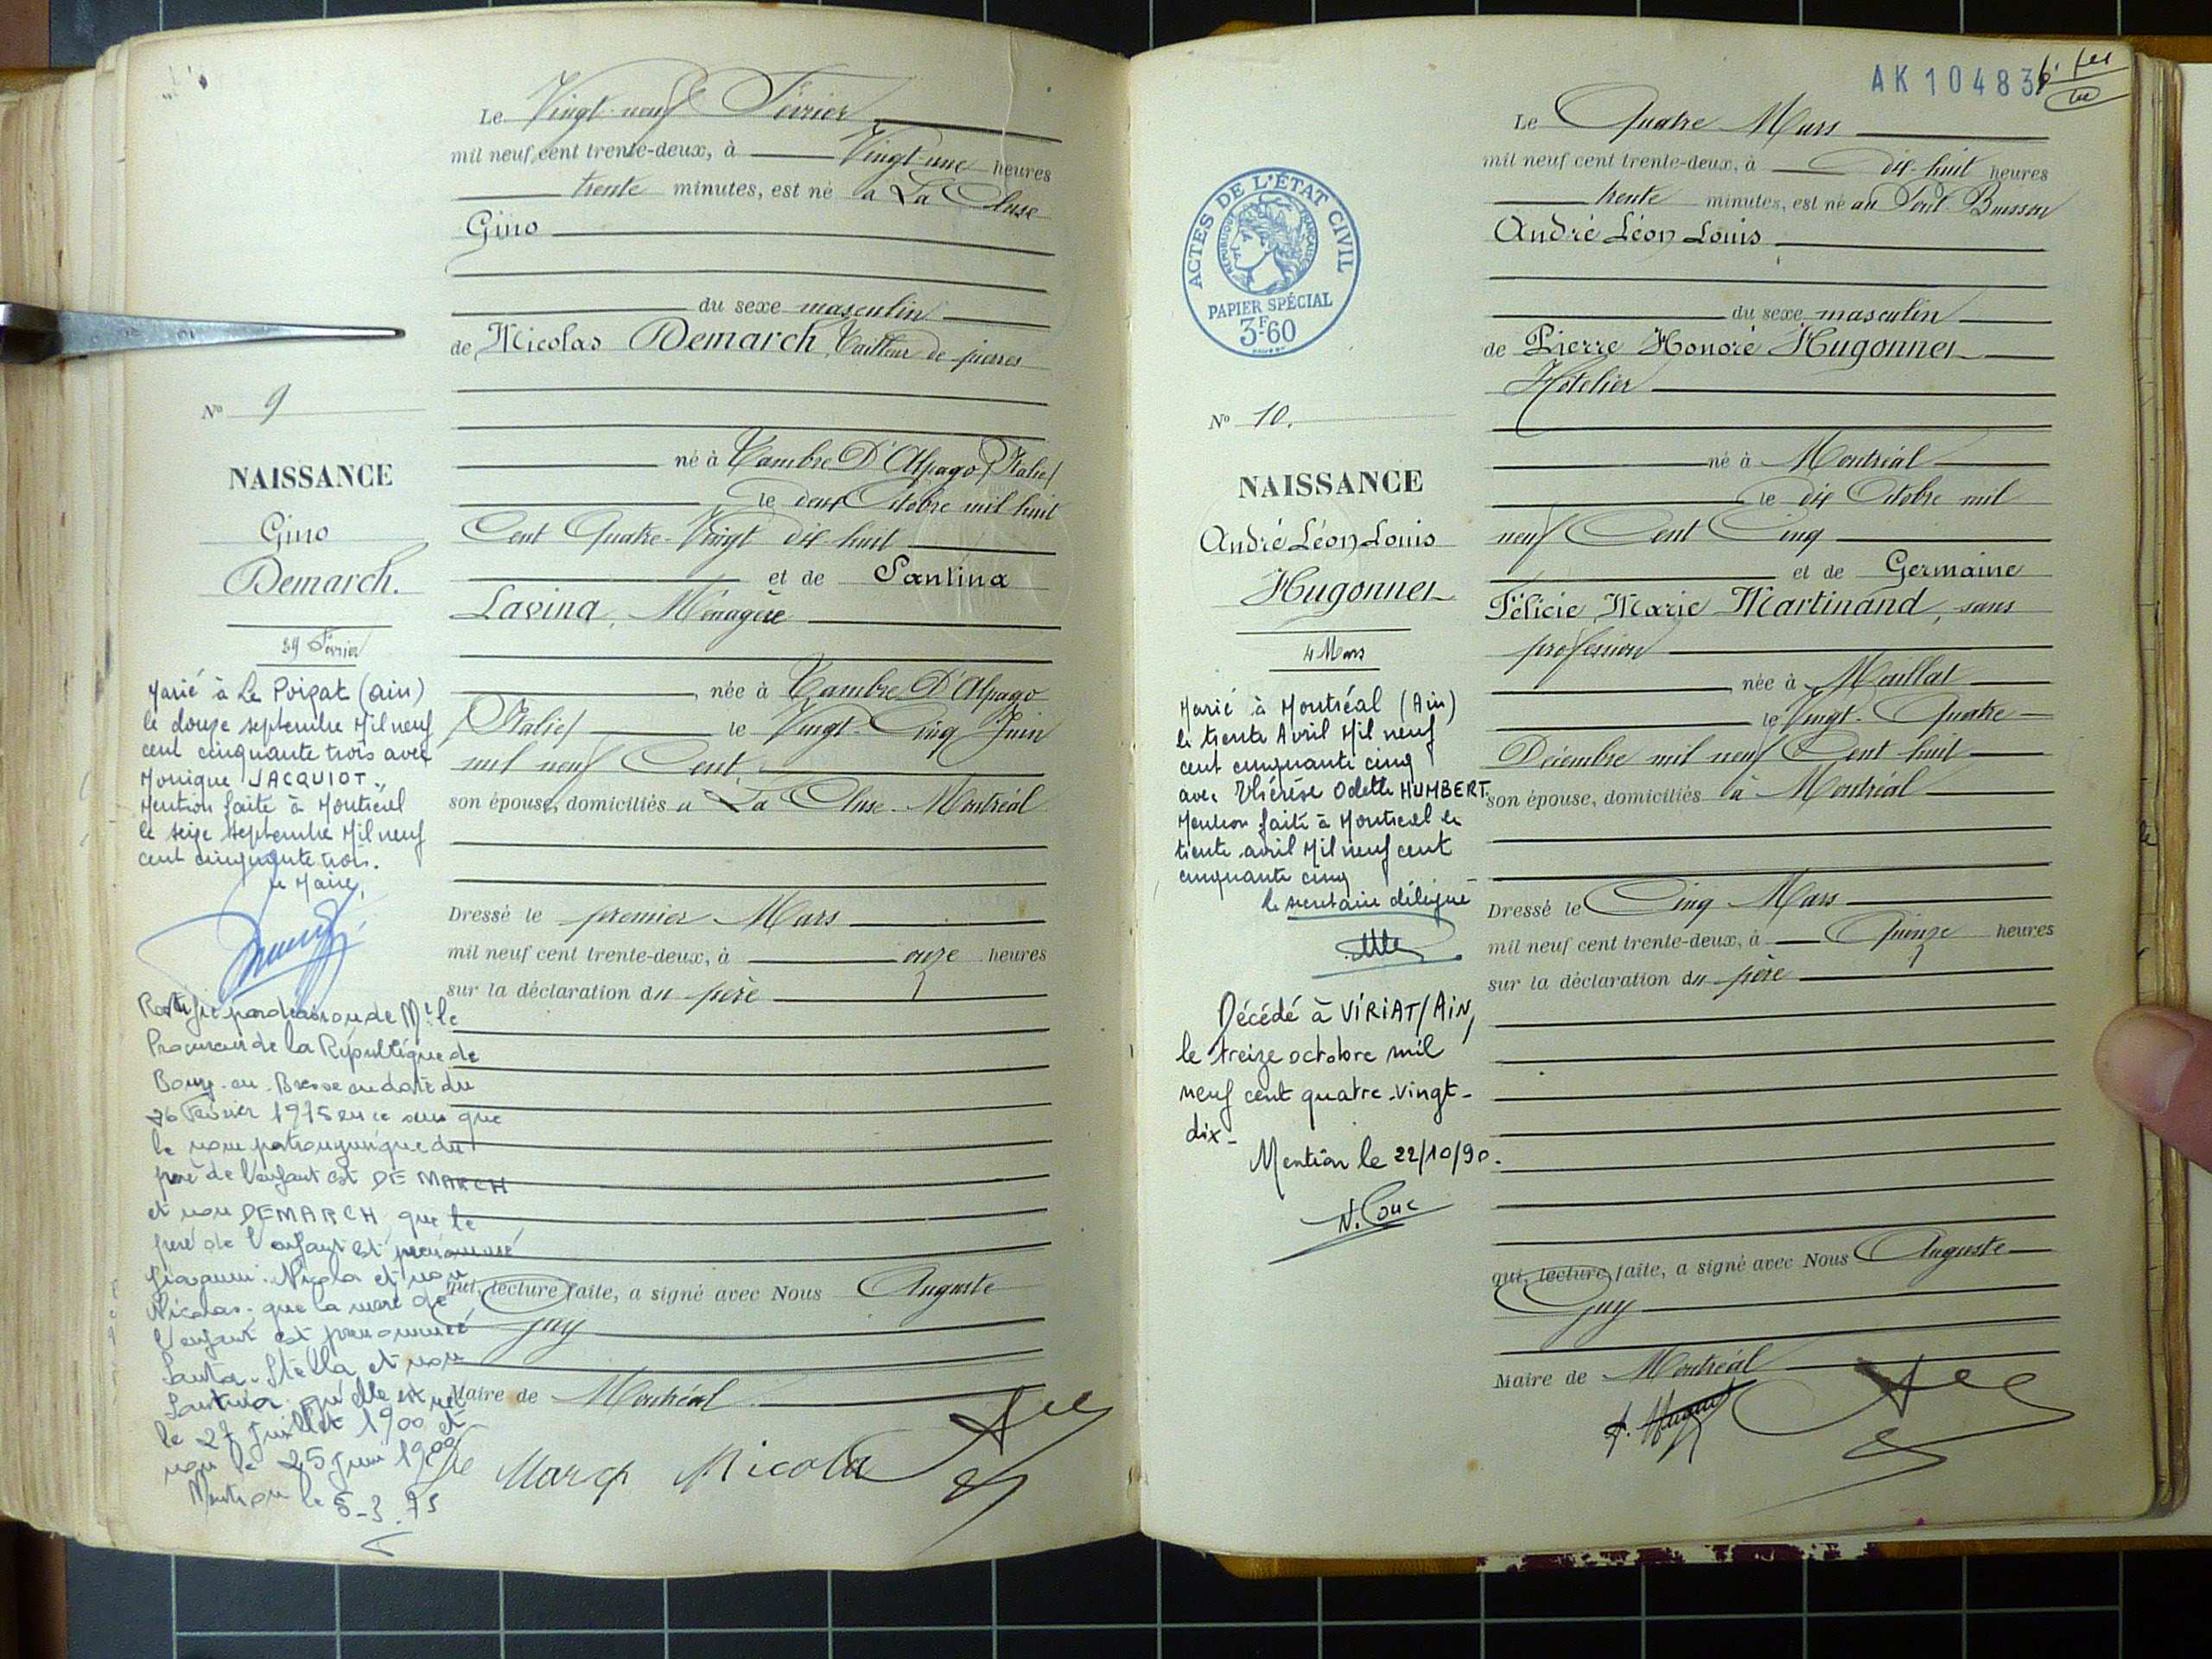 Le Vingt-neuf Février
mil neuf cent trente-deux, à Vingt-une heures
trente minutes, est né à La Cluse
Gino
du sexe masculin
de Nicolas Demarch, Tailleur de pierres
né à Tambre D'Alpago (Italie)
le deux Octobre mil huit
Cent Quatre-Vingt dix-huit
et de Santina
Lavina, Ménagère
née à Tambre D'Alpago
(Italie) le Vingt-Cinq Juin
mil neuf Cent,
son épouse, domiciliés à La Cluse-Montréal
Dressé le premier Mars
mil neuf cent trente-deux, à onze heures
sur la déclaration du père
qui, lecture faite, a signé avec Nous Auguste
Guy
Maire de Montréal
De March Nicola
N° 9
NAISSANCE
Gino
Demarch.
29 Février
Marié à Le Poizat (Ain)
le douze septembre Mil neuf
cent cinquante trois avec
Monique JACQUIOT.
Mention faite à Montréal
le seize Septembre Mil neuf
cent cinquante trois.
le Maire,
Rectifié par décision de Mr le
Procureur de la République de
Bourg-en-Bresse en date du
26 Février 1975 en ce sens que
le nom patronymique du
père de l'enfant est DE MARCH
et non DEMARCH, que le
père de l'enfant est prénommé
Giovanni-Nicola et non
Nicolas, que la mère de
l'enfant est prénommée
Santa-Stella et non
Santina, qu'elle est née
le 27 Juillet 1900 et
non le 25 Juin 1900
Mention le 5-3-75
AK 10483
Le Quatre Mars
mil neuf cent trente-deux, à dix-huit heures
trente minutes, est né au Pont-Buisson
André Léon Louis
du sexe masculin
de Pierre Honoré Hugonnet
Hôtelier
né à Montréal
le dix Octobre mil
neuf Cent Cinq
et de Germaine
Félicie Marie Martinand, sans
profession
née à Maillat
le Vingt-Quatre
Décembre mil neuf Cent huit
son épouse, domiciliés à Montréal
Dressé le Cinq Mars
mil neuf cent trente-deux, à Quinze heures
sur la déclaration du père
qui, lecture faite, a signé avec Nous Auguste
Guy
Maire de Montréal
ACTES DE L'ÉTAT CIVIL
RÉPUBLIQUE FRANÇAISE
PAPIER SPÉCIAL
3F60
N° 10.
NAISSANCE
André Léon Louis
Hugonnet
4 Mars
Marié à Montréal (Ain)
le trente Avril Mil neuf
cent cinquante cinq
avec Thérèse Odette HUMBERT.
Mention faite à Montréal le
trente avril Mil neuf cent
cinquante cinq
le secrétaire délégué
Décédé à VIRIAT/AIN,
le treize octobre mil
neuf cent quatre-vingt-
dix-
Mention le 22/10/90.